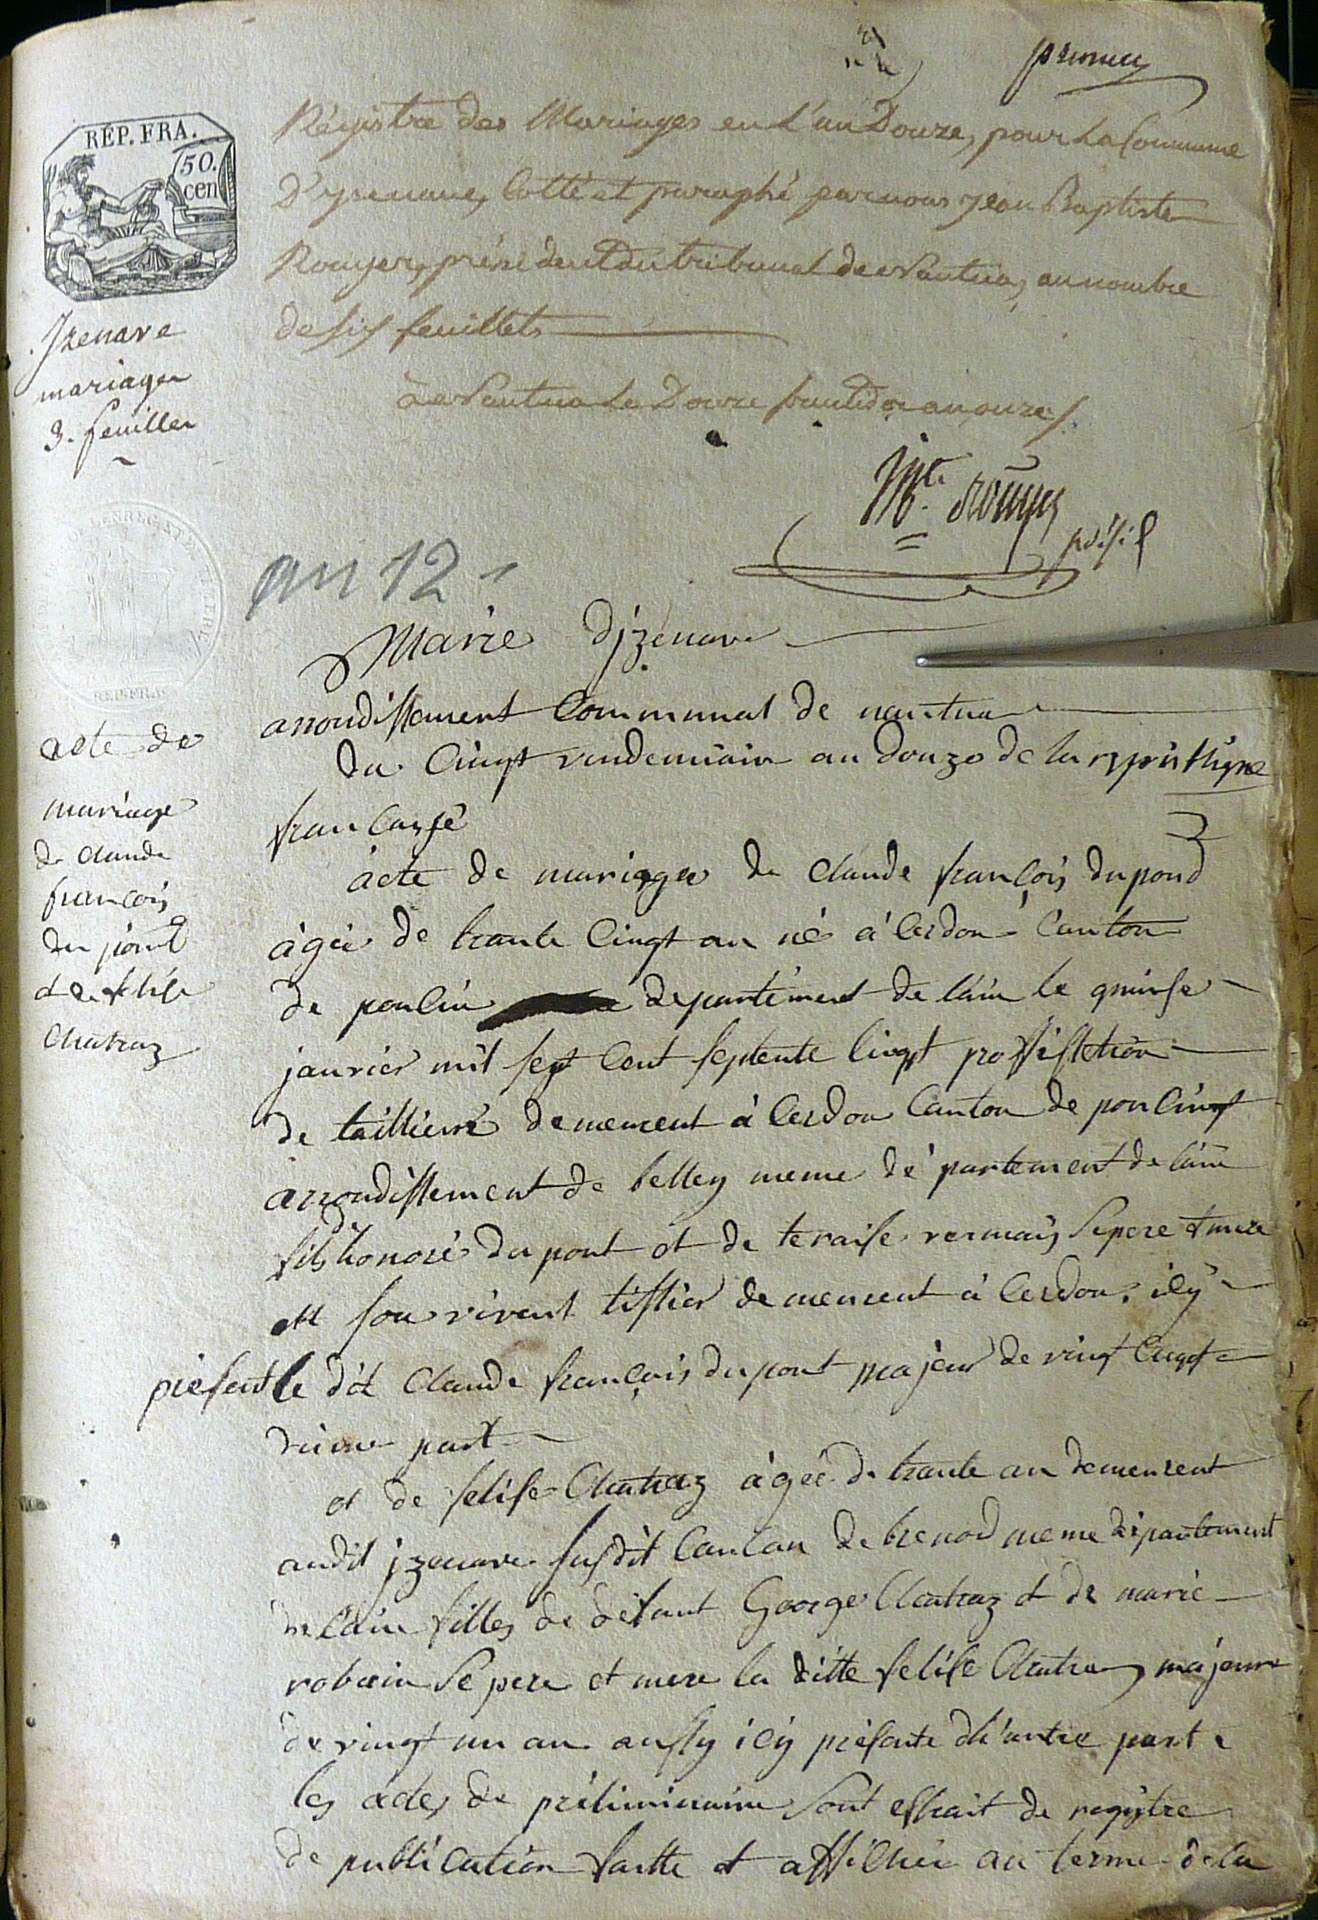 premier
RÉP. FRA.
50.
cen
Régistre des Mariages en L'an Douze, pour La Commune
D'yzenave, Cotté et paraphé par nous Jean Baptiste
Rouyer, président du tribunal de Nantua, au nombre
de six feuillets
à Nantua Le Douze fructidor an onze
Jzenave
mariages
3. feuilles
Rouyer
présid
an 12
Marie d'jzenave
arrondissement Communal de nantua
du Cinqt vendemiair an douze de la
francaise
acte de
mariage
de claude
françois
du pont
et de felise
Chatraz
acte de mariage de claude françois dupond
àgée de trante Cinqt an né à Cerdon Canton
de poncin departement de l'ain le quinse
janvier mil sept Cent septente Cinqt
de taillieur demeurent à Cerdon Canton de poncinqt
arrondissement de belley meme département de l'ain
fils honoré du pont et de teraise se pere et mere
demeurent à Cerdon. icy
présent le dit Claude françois du pont majeur de vingt Cinqt
d'une part
et de felise Chatraz àgée de trante an demeurent
audit jzenave susdit Canton de brenod meme département
de l'ain filles de défunt George Chatraz et de marie
robain se pere et mere la ditte felise Chatra majeure
de vingt un an aussy icy présente d'autre part
les actes de préliminaire sont estrait de registre
de publication faitte et affichée au terme de la